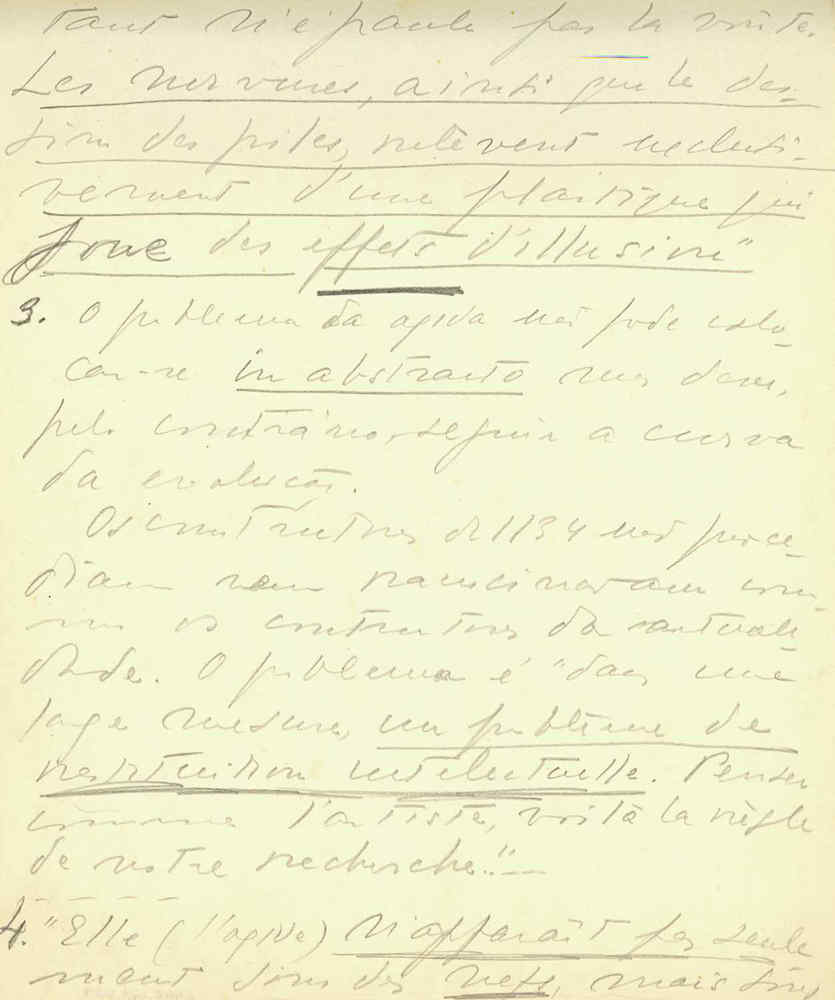 tant n'épaule pas la voûte.
Les nervures, ainsi que le des-
sin des piles, relèvent exclusi-
vement d'une plastique qui
joue des effets d'illusion"
3. O problema da ogiva não pode colo-
car-se in abstracto mas deve,
pelo contrário, seguir a curva
da evolução.
Os construtores de 1134 não proce-
diam nem raciocinavam com-
mo os construtores da actuali-
dade. O problema é "dans une
large mesure, un problème de
restituition intelectuelle. Penser
comme l'artiste, voilà la règle
de notre recherche."—
4. "Elle (l'ogive) n'apparaît pas seule
ment sous des nefs, mais sous